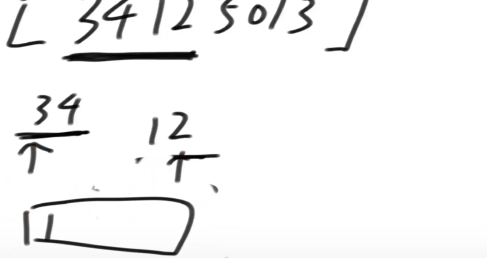 [ 3412 5013 ]
34 12
1